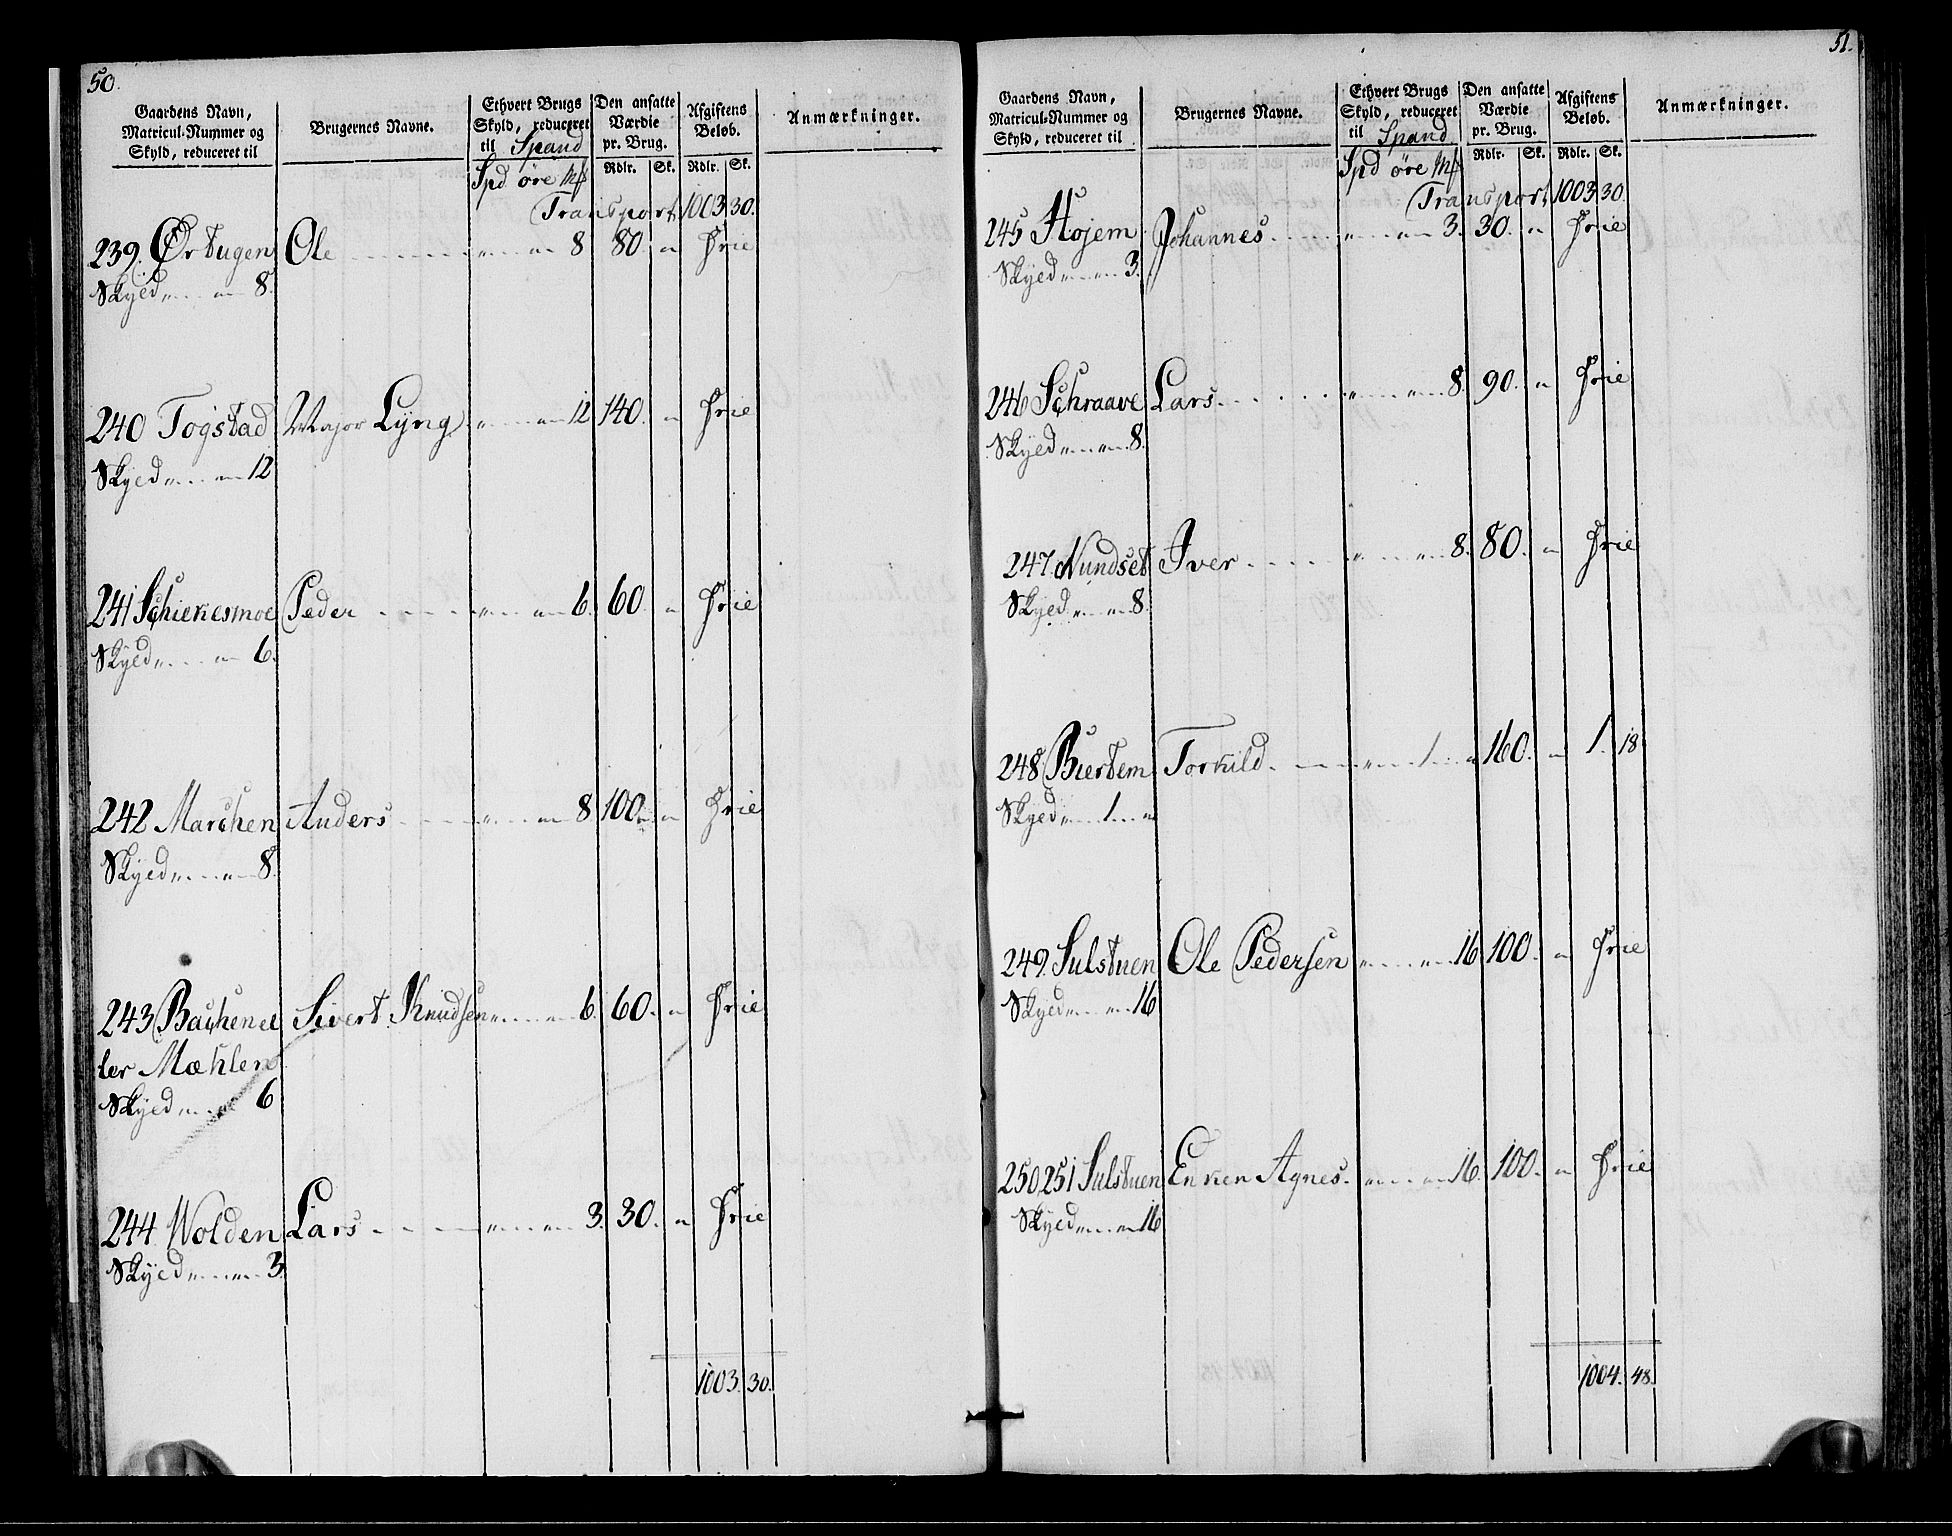 50.
Gaardens Navn, Matricul-Nummer og Skyld, reduceret til | Brugernes Navne. | Ethvert Brugs Skyld, reduceret til Spand | Den ansatte Værdie pr. Brug. | Afgiftens Beløb. | Anmærkninger.
Spd øre Mk | Rdlr. | Sk. | Rdlr. | Sk.
Transport 1003 30.
239. Ørtugen | Ole | " " 8 | 80. " | Frie
Skyld " " 8.
240 Togstad | Major Lyng | " " 12 | 140. " | Frie
Skyld " " 12
241 Schienesmoe | Peder | " " 6. | 60. " | Frie
Skyld " " 6.
242 Marchen | Anders | " " 8 | 100. " | Frie
Skyld " " 8.
243 Bachen el | Sivert Knudsen | " " 6. | 60. " | Frie
ler Mæhlen
Skyld " " 6
244 Wolden | Lars | " " 3. | 30. " | Frie
Skyld " " 3.
1003. 30.
51.
Gaardens Navn, Matricul-Nummer og Skyld, reduceret til | Brugernes Navne. | Ethvert Brugs Skyld, reduceret til Spand | Den ansatte Værdie pr. Brug. | Afgiftens Beløb. | Anmærkninger.
Spd øre Mk | Rdlr. | Sk. | Rdlr. | Sk.
Transport 1003 30.
245 Hojem | Johannes | " " 3. | 30. " | Frie
Skyld " " 3.
246 Schraave | Lars | " " 8. | 90. " | Frie
Skyld " " 8.
247. Nundset | Iver | " " 8. | 80. " | Frie
Skyld " " 8.
248 Biertem | Torkild | " 1. " | 160. " | 1. 18
Skyld " 1. "
249. Sulstuen | Ole Pedersen | " " 16 | 100. " | Frie
Skyld " " 16
250, 251 Sulstuen | Enken Agnes. | " " 16. | 100. " | Frie
Skyld " " 16
1004. 48.